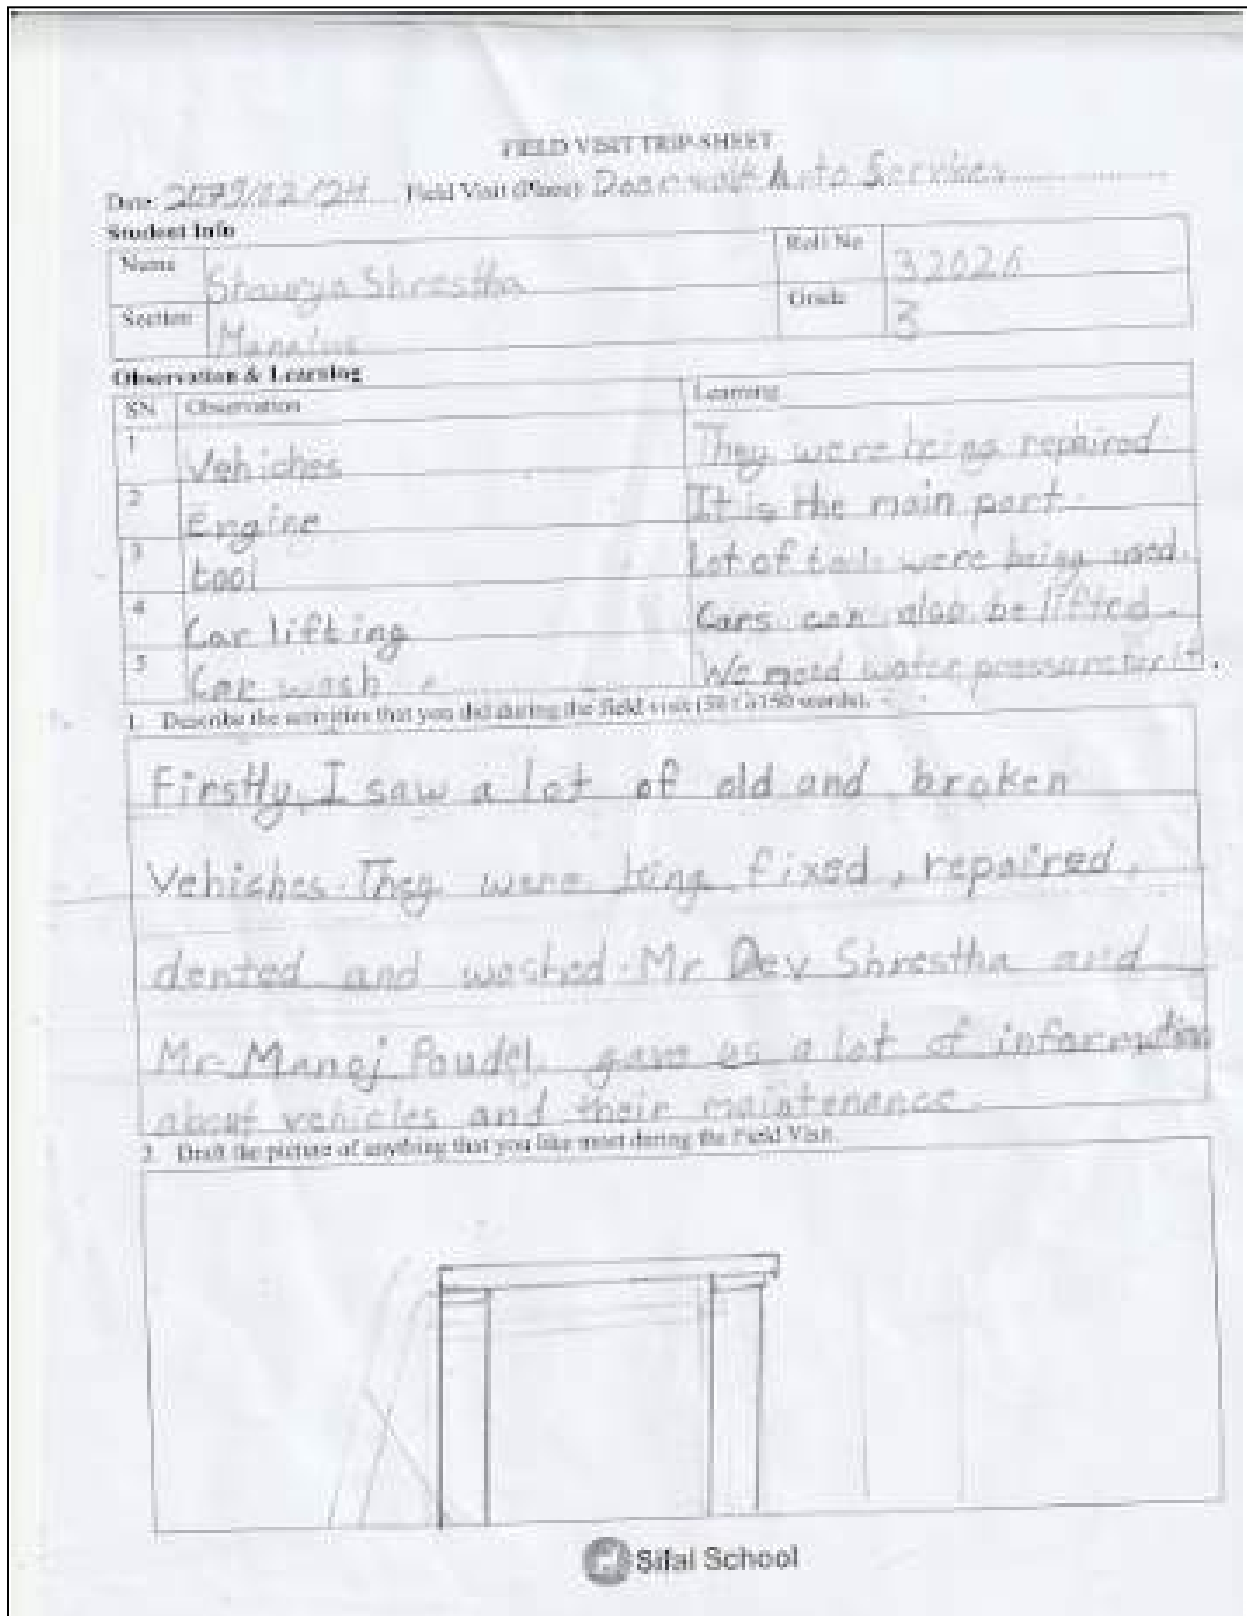 FIELD VISIT TRIP-SHEET
Date: 2079/02/24 Field Visit (Place): Auto Services
Student Info
Name Shaurya Shrestha Roll No 32026
Section Grade 3
Observation & Learning
SN Observation Learning
1 Vehiches They were being repaired
2 Engine It is the main part.
3 tool Lot of tools were being used.
4 Car lifting Cars can also be lifted.
5 Car wash We need water pressure for it.
1. Describe the activities that you did during the field visit (50 to 150 words).
Firstly, I saw a lot of old and broken
Vehiches. They were being fixed, repaired,
dented and washed. Mr Dev Shrestha and
Mr. Manoj Poudel gave us a lot of information
about vehicles and their maintenance.
2. Draft the picture of anything that you like most during the Field Visit.
Sifal School